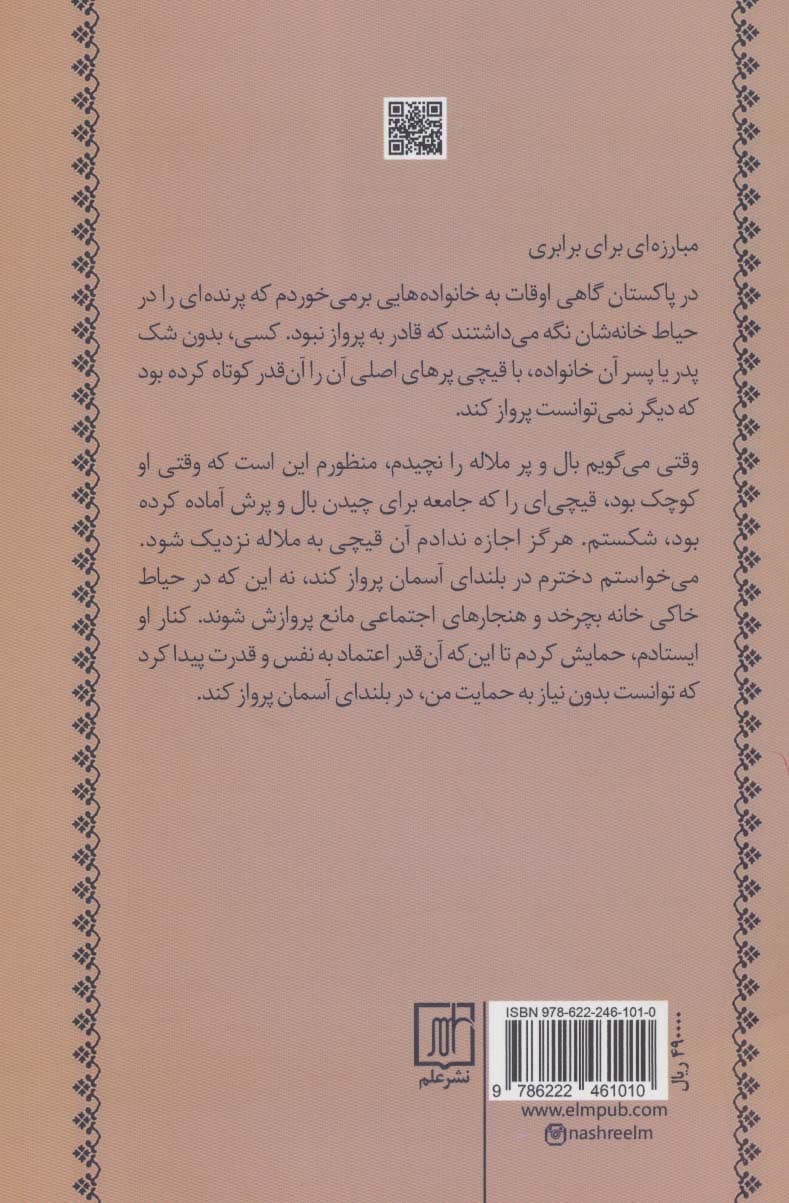 مبارزه‌ای برای برابری
در پاکستان گاهی اوقات به خانواده‌هایی برمی‌خوردم که پرنده‌ای را در
حیاط خانه‌شان نگه می‌داشتند که قادر به پرواز نبود. کسی، بدون شک
پدر یا پسر آن خانواده، با قیچی پرهای اصلی آن را آن‌قدر کوتاه کرده بود
که دیگر نمی‌توانست پرواز کند.
وقتی می‌گویم بال و پر ملاله را نچیدم، منظورم این است که وقتی او
کوچک بود، قیچی‌ای را که جامعه برای چیدن بال و پرش آماده کرده
بود، شکستم. هرگز اجازه ندادم آن قیچی به ملاله نزدیک شود.
می‌خواستم دخترم در بلندای آسمان پرواز کند، نه این که در حیاط
خاکی خانه بچرخد و هنجارهای اجتماعی مانع پروازش شوند. کنار او
ایستادم، حمایش کردم تا این‌که آن‌قدر اعتماد به نفس و قدرت پیدا کرد
که توانست بدون نیاز به حمایت من، در بلندای آسمان پرواز کند.
ISBN 978-622-246-101-0
9 786222 461010
۴۹۰۰۰۰ ریال
نشر علم
www.elmpub.com
nashreelm